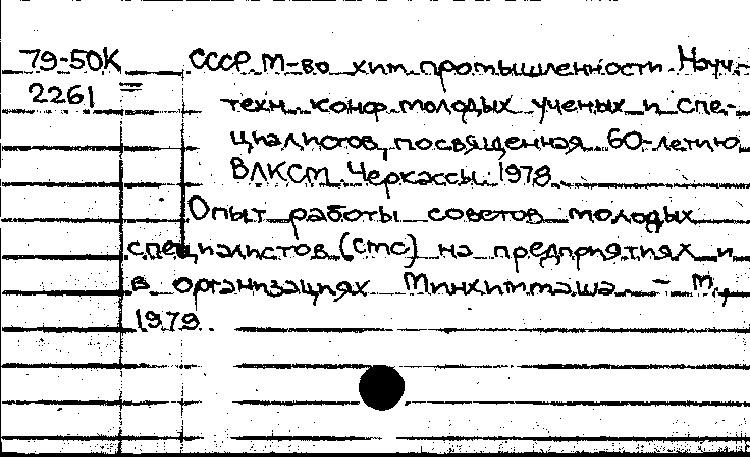 79-50К СССР. М-во хим. промышленности. Науч.-
2261 = техн. конф. молодых ученых и спе-
циалистов, посвященная 60-летию
ВЛКСМ. Черкассы. 1978.
Опыт работы советов молодых
специалистов (СМС) на предприятиях и
в организациях Минхиммаша. - М.,
1979.